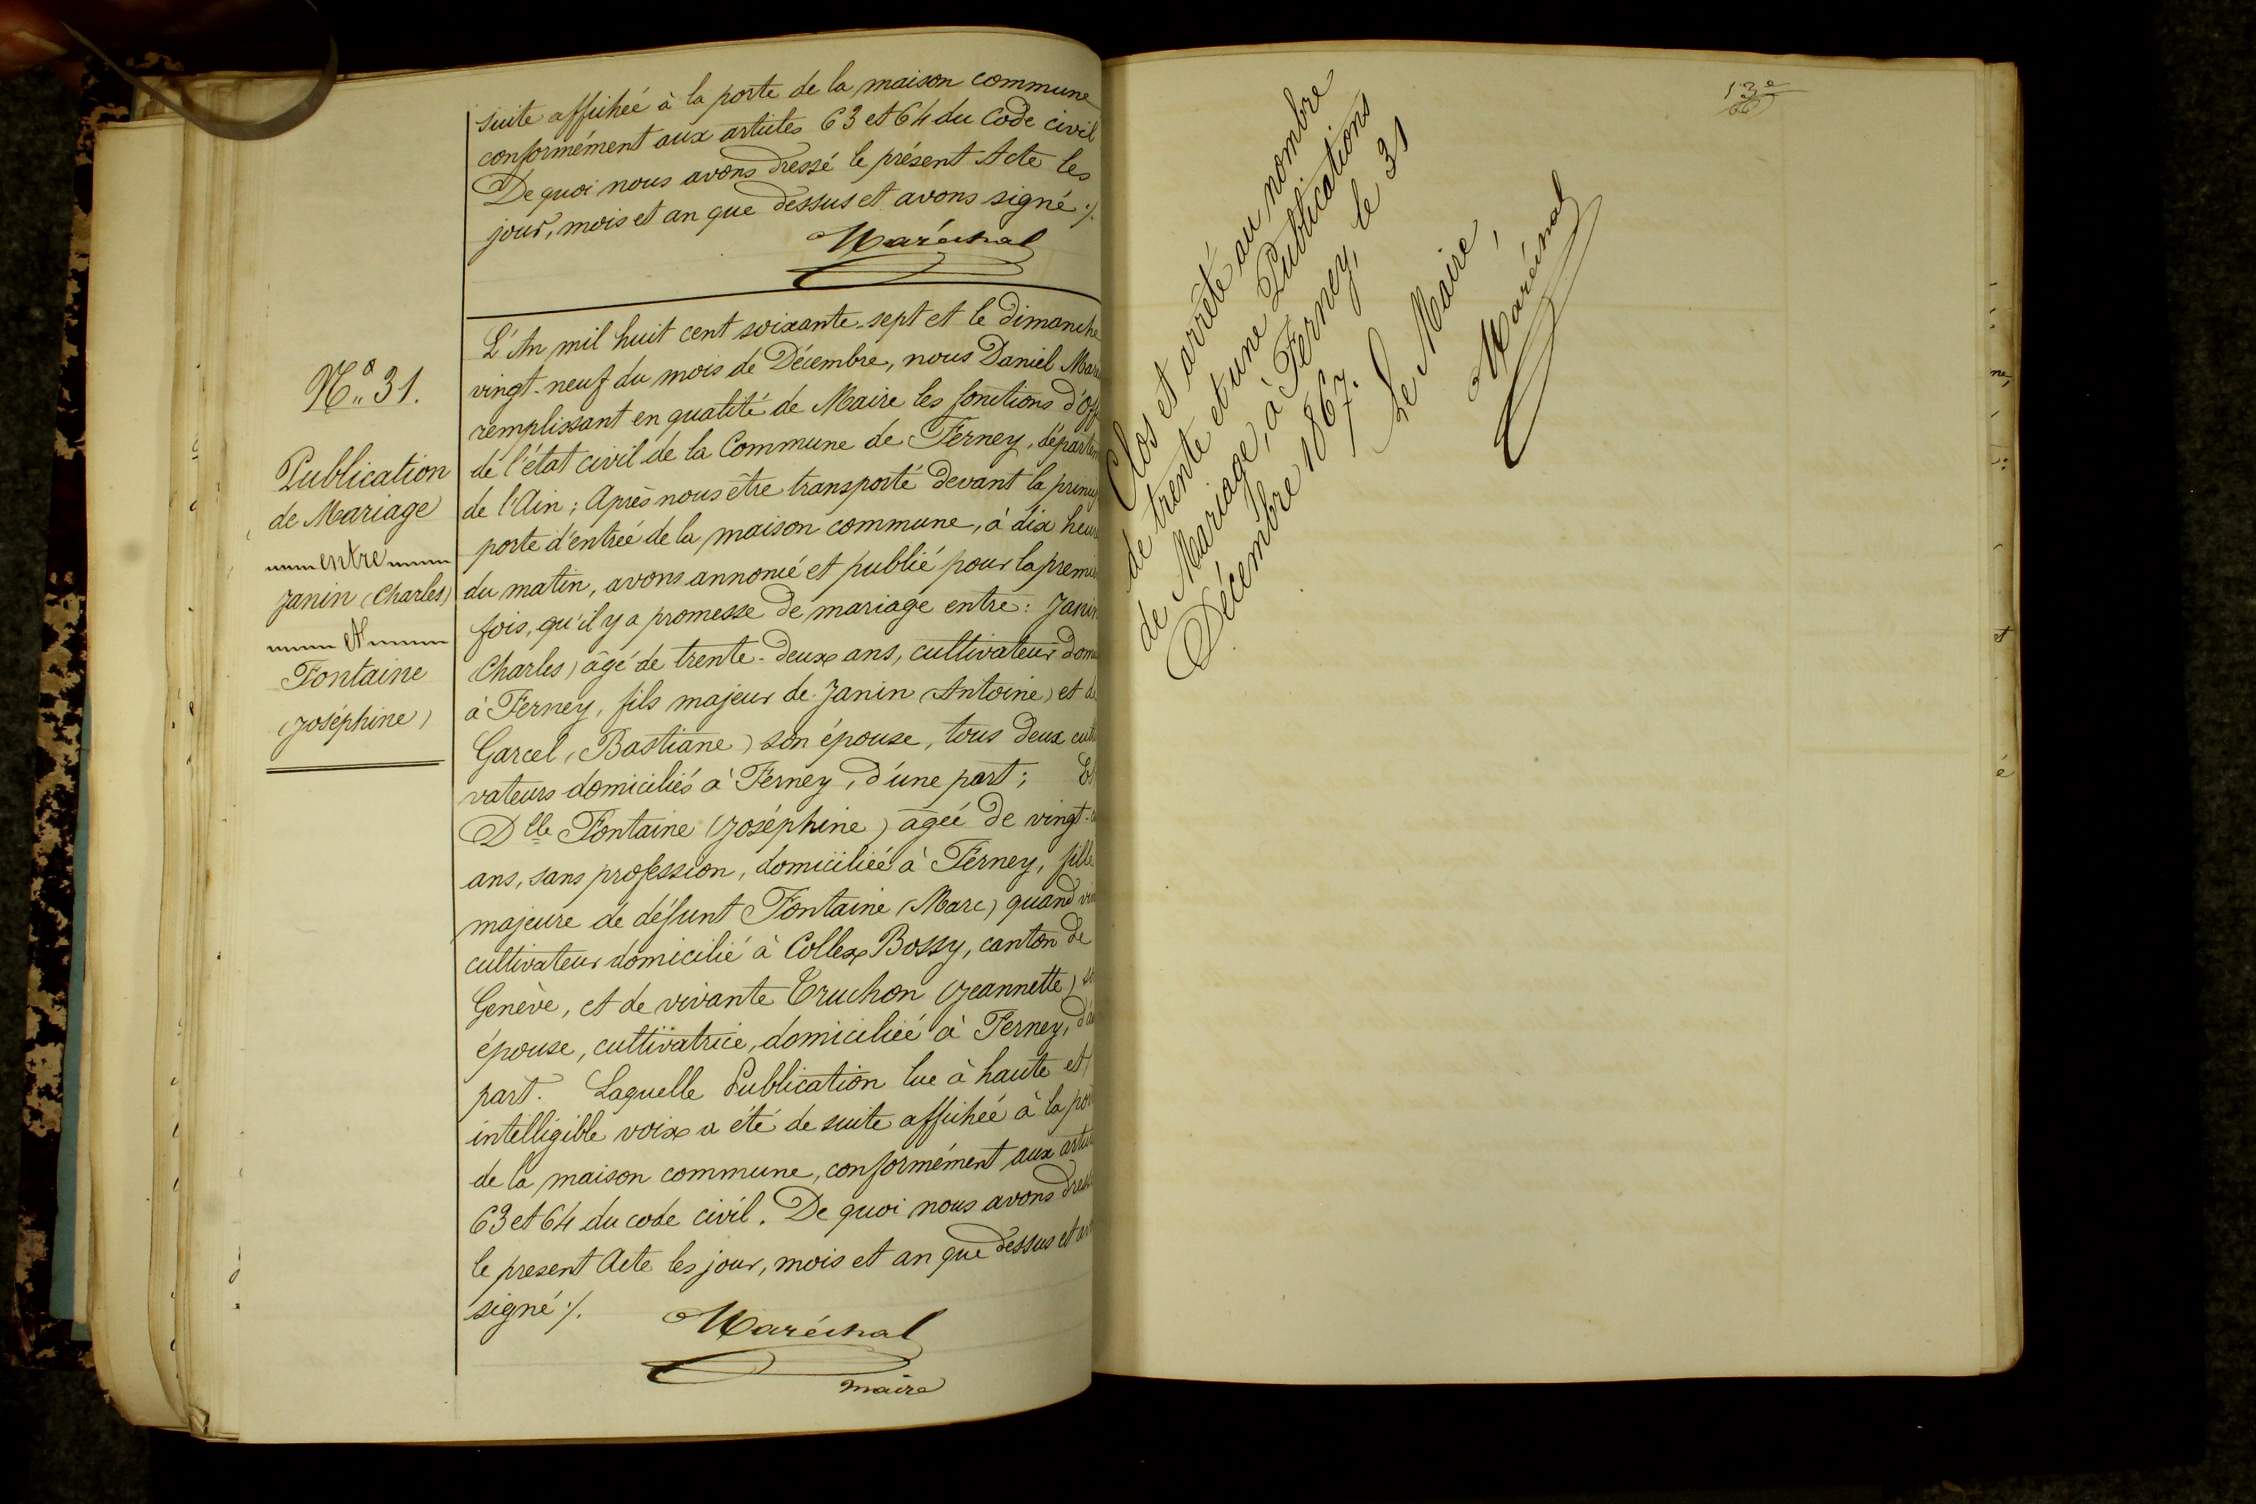 suite affichée à la porte de la maison commune
conformément aux articles 63 et 64 du Code civil
De quoi nous avons dressé le présent Acte les
jour, mois et an que dessus et avons signé ./.
Maréchal
N.º 31.
Publication
de Mariage
entre
Janin (Charles)
et
Fontaine
(Joséphine)
L'An mil huit cent soixante-sept et le dimanche
vingt-neuf du mois de Décembre, nous Daniel Maré
remplissant en qualité de Maire les fonctions d'Off
de l'état civil de la Commune de Ferney, départem
de l'Ain ; Après nous être transporté devant la princip
porte d'entrée de la maison commune, à dix heure
du matin, avons annoncé et publié pour la premiè
fois, qu'il y a promesse de mariage entre : Janin
(Charles) âgé de trente-deux ans, cultivateur domi
à Ferney, fils majeur de Janin (Antoine) et de
Garcel (Bastiane) son épouse, tous deux culti
vateurs domiciliés à Ferney, d'une part ; Et
Dlle Fontaine (Joséphine) agée de vingt-
ans, sans profession, domiciliée à Ferney, fille
majeure de défunt Fontaine (Marc) quand viv
cultivateur domicilié à Collex Bossy, canton de
Genève, et de vivante Truchon (Jeannette) s
épouse, cultivatrice, domiciliée à Ferney, d'au
part. Laquelle Publication lue à haute et
intelligible voix a été de suite affichée à la por
de la maison commune, conformément aux artic
63 et 64 du code civil. De quoi nous avons dressé
le present Acte les jour, mois et an que dessus et avo
signé ./.
Maréchal
maire
13e
Clos et arrêté au nombre
de trente et une Publications
de Mariage, à Ferney, le 31
Décembre 1867.
Le Maire,
Maréchal